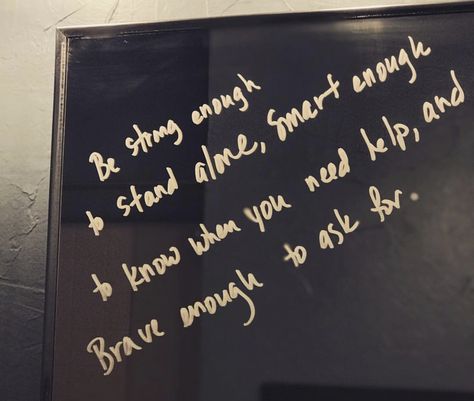 Be strong enough
to stand alone, smart enough
to know when you need help, and
Brave enough to ask for.